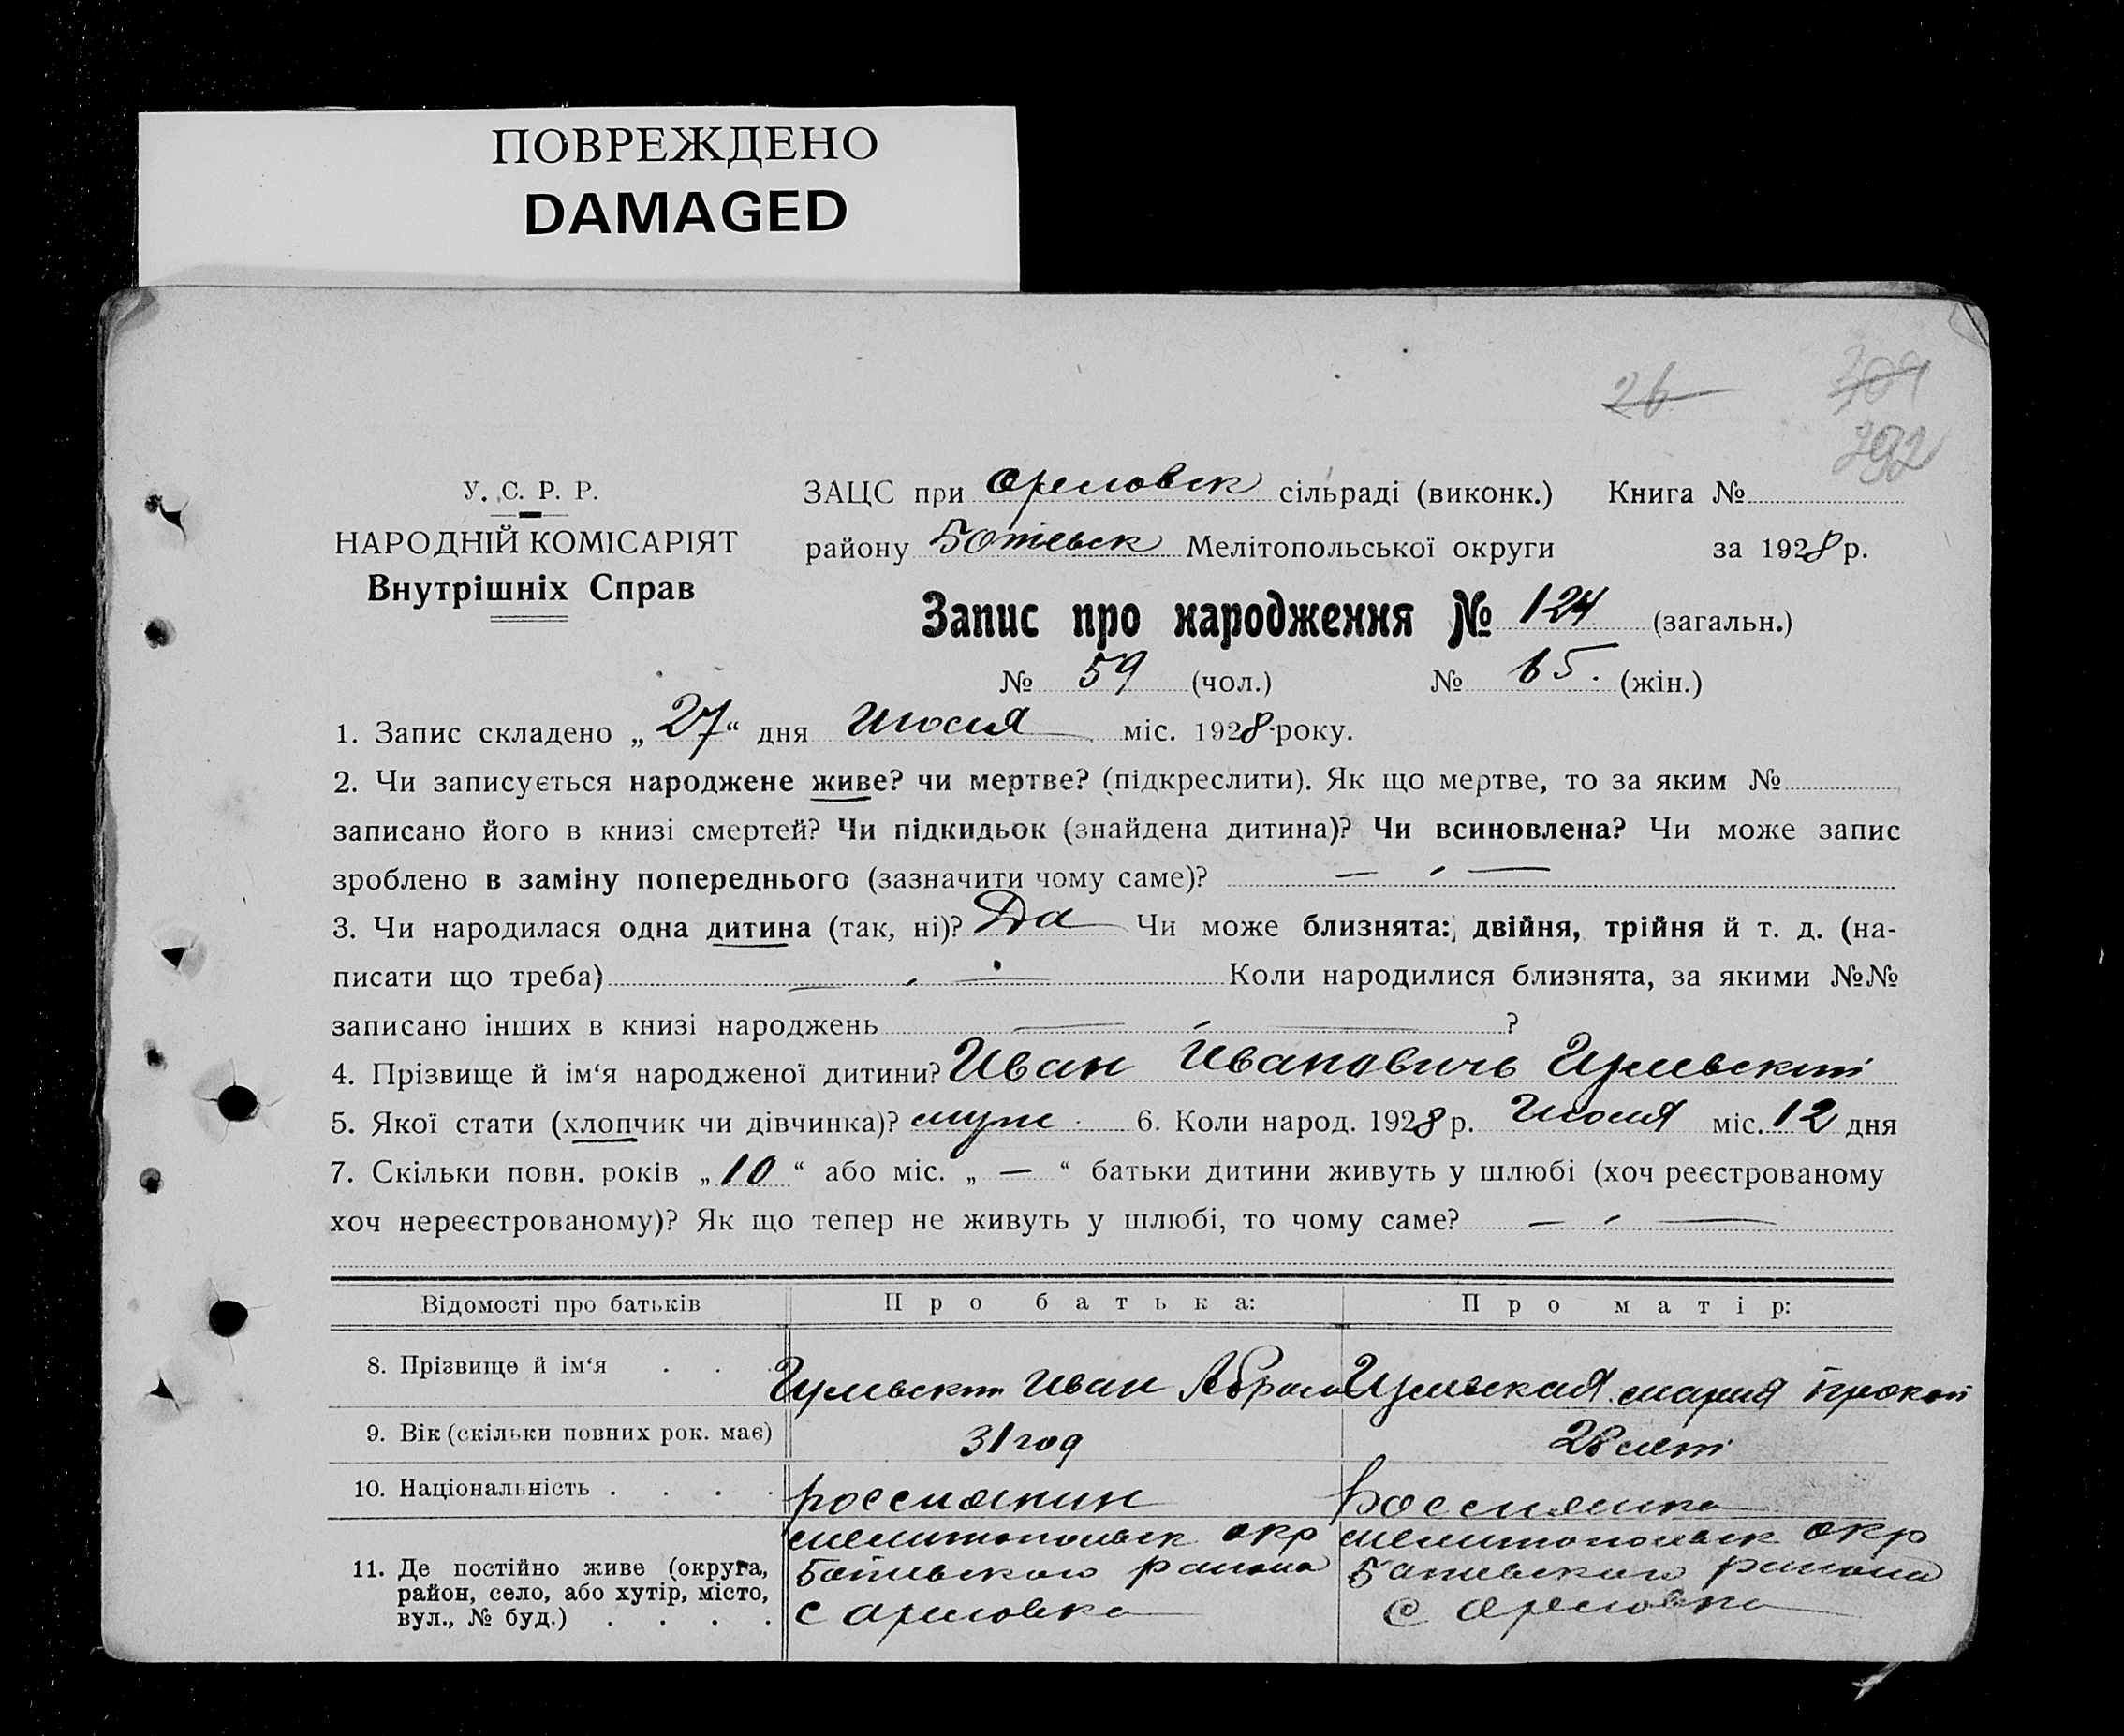 ПОВРЕЖДЕНО
DAMAGED
26
309
392
У. С. Р. Р.
НАРОДНІЙ КОМІСАРІЯТ
Внутрішніх Справ
ЗАЦС при Орловск сільраді (виконк.) Книга №
району Ботевск Мелітопольської округи за 1928 р.
Запис про народження № 124 (загальн.)
№ 59 (чол.) № 65. (жін.)
1. Запис складено „27“ дня Июля міс. 1928 року.
2. Чи записується народжене живе? чи мертве? (підкреслити). Як що мертве, то за яким №
записано його в книзі смертей? Чи підкидьок (знайдена дитина)? Чи всиновлена? Чи може запис
зроблено в заміну попереднього (зазначити чому саме)?
3. Чи народилася одна дитина (так, ні)? Да Чи може близнята: двійня, трійня й т. д. (на-
писати що треба) Коли народилися близнята, за якими №№
записано інших в книзі народжень ?
4. Прізвище й ім‘я народженої дитини? Иван Ивановичь
5. Якої стати (хлопчик чи дівчинка)? муж. 6. Коли народ. 1928 р. Июля міс. 12 дня
7. Скільки повн. років „10“ або міс. „—“ батьки дитини живуть у шлюбі (хоч реєстрованому
хоч нереєстрованому)? Як що тепер не живуть у шлюбі, то чому саме?
Відомості про батьків Про батька: Про матір:
8. Прізвище й ім‘я . . . Иван Абрам Мария Прокоп
9. Вік (скільки повних рок. має) 31 год 28 лет
10. Національність . . . . россиянин Россиянка
11. Де постійно живе (округа, район, село, або хутір, місто, вул., № буд.) . . . .
мелитопольск окр мелитопольск окр
Ботевского района Ботевского района
с Орловка с Орловка